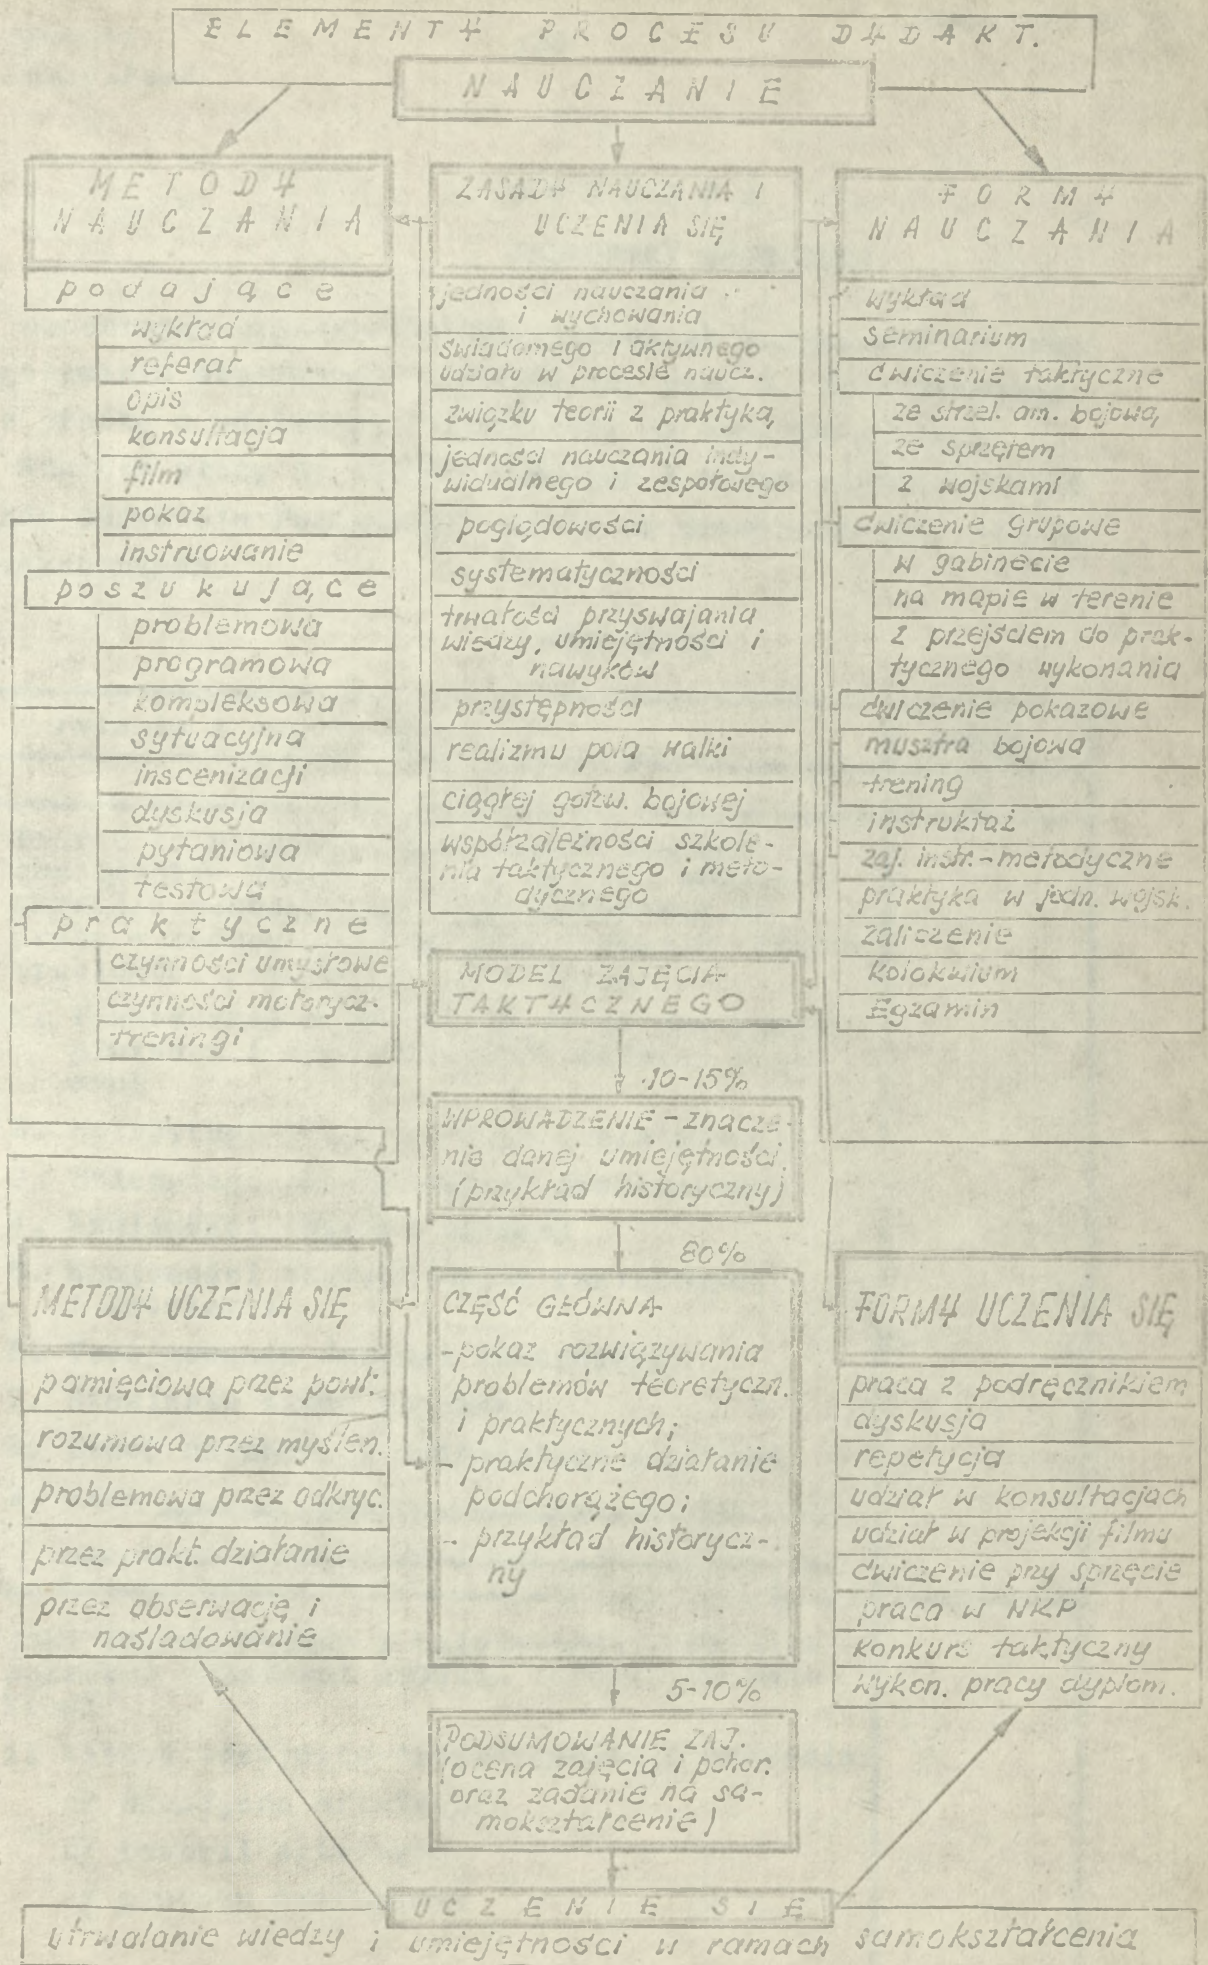 ELEMENTY PROCESU DYDAKT.
NAUCZANIE
METODY
NAUCZANIA
podające
wykład
referat
opis
konsultacja
film
pokaz
instruowanie
poszukujące
problemowa
programowa
kompleksowa
sytuacyjna
inscenizacji
dyskusja
pytaniowa
testowa
praktyczne
czynności umysłowe
czynności motorycz.
treningi
ZASADY NAUCZANIA I
UCZENIA SIĘ
jedności nauczania
i wychowania
świadomego i aktywnego
udziału w procesie naucz.
związku teorii z praktyką
jedności nauczania indy-
widualnego i zespołowego
poglądowości
systematyczności
trwałości przyswajania
wiedzy, umiejętności i
nawyków
przystępności
realizmu pola walki
ciągłej gotow. bojowej
współzależności szkole-
nia taktycznego i meto-
dycznego
FORMY
NAUCZANIA
wykład
seminarium
ćwiczenie taktyczne
ze strzel. am. bojową
ze sprzętem
z wojskami
ćwiczenie grupowe
w gabinecie
na mapie w terenie
z przejściem do prak-
tycznego wykonania
ćwiczenie pokazowe
musztra bojowa
trening
instruktaż
zaj. instr.-metodyczne
praktyka w jedn. wojsk.
zaliczenie
kolokwium
Egzamin
MODEL ZAJĘCIA
TAKTYCZNEGO
10-15%
WPROWADZENIE - znacze-
nie danej umiejętności
(przykład historyczny)
80%
CZĘŚĆ GŁÓWNA
- pokaz rozwiązywania
problemów teoretyczn.
i praktycznych;
- praktyczne działanie
podchorążego;
- przykład historycz-
ny
5-10%
PODSUMOWANIE ZAJ.
(ocena zajęcia i pchor.
oraz zadanie na sa-
mokształcenie)
METODY UCZENIA SIĘ
pamięciowa przez powt.
rozumowa przez myślen.
problemowa przez odkryc.
przez prakt. działanie
przez obserwację i
naśladowanie
FORMY UCZENIA SIĘ
praca z podręcznikiem
dyskusja
repetycja
udział w konsultacjach
udział w projekcji filmu
ćwiczenie przy sprzęcie
praca w NKP
konkurs taktyczny
wykon. pracy dyplom.
UCZENIE SIĘ
utrwalanie wiedzy i umiejętności w ramach samokształcenia